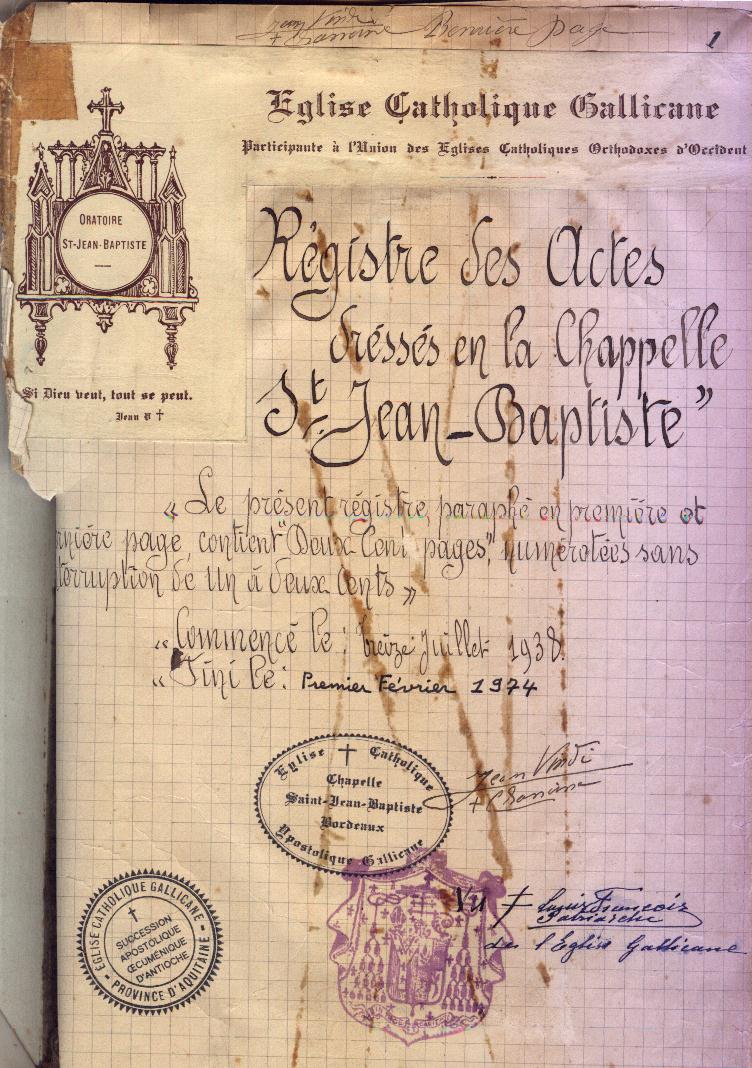 Jean Vindi
+ Chanoine Dernière page
1
Eglise Catholique Gallicane
Participante à l'Union des Eglises Catholiques Orthodoxes d'Occident
ORATOIRE
ST-JEAN-BAPTISTE
Si Dieu veut, tout se peut.
Régistre des Actes
dréssés en la Chappelle
St. Jean-Baptiste"
« Le présent régistre, paraphé en première et
rnière page, contient "Deux Cent pages", numérotées sans
terruption de un à deux cents »
« Commencé le : treize Juillet 1938.
« Fini le : Premier Février 1974
Eglise Catholique
Chapelle
Saint-Jean-Baptiste
Bordeaux
Apostolique Gallicane
Jean Vindi
+ Chanoine
EGLISE CATHOLIQUE GALLICANE
SUCCESSION
APOSTOLIQUE
ŒCUMÉNIQUE
D'ANTIOCHE
PROVINCE D'AQUITAINE
Vu + Louis François
Patriarche
de l'Eglise Gallicane